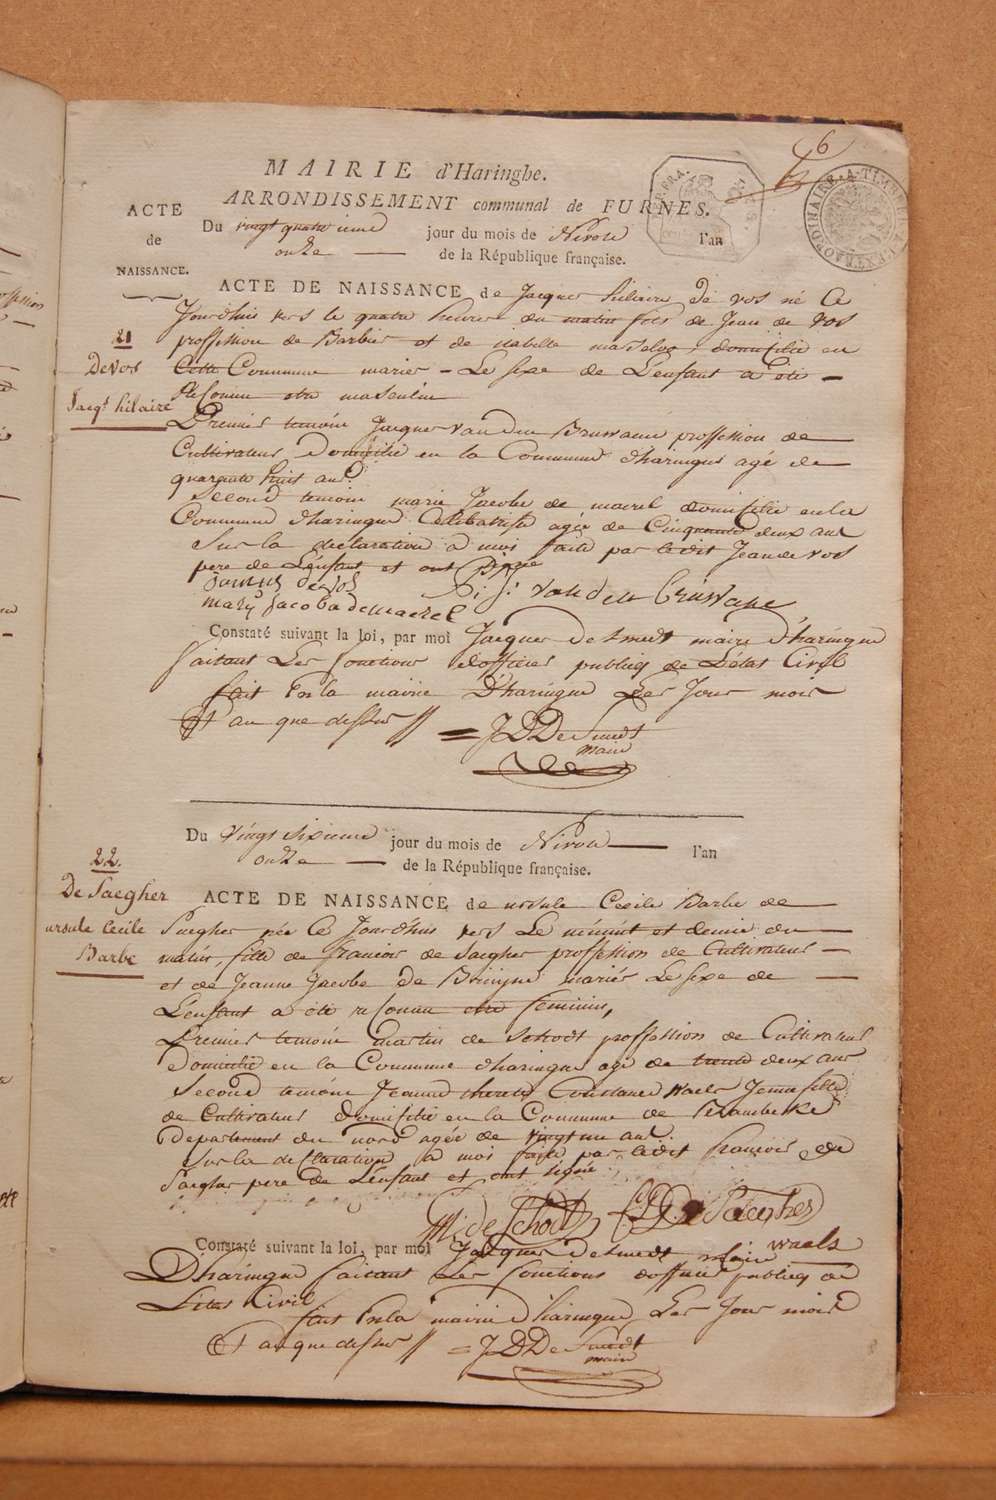 6
MAIRIE d'Haringhe.
ARRONDISSEMENT communal de FURNES.
ACTE
de
NAISSANCE.
Du vingt quatrieme jour du mois de Nivose l'an
onze — de la République française.
21
De vos
Jacqs hilaire
ACTE DE NAISSANCE de Jacques hilaire de vos né Ce
Jourdhuis vers le quatre heures du matin fils de Jean de vos
proffession de Barbier et de isabelle domicilié en
Cette Commune mariés - Le sexe de Lenfant a été -
Reconnu etre masculin
Premier temoin Jacques van den Bruwaene proffession de
Cultivateur Domicilié en la Commune dharingue agé de
quarante huit ans
Second temoin marie Jacobe de marel domicilie en la
Commune dharingue Celibatriste agée de Cinquante deux ans
Sur la declaration a moi faite par ledit Jean de vos
pere de Lenfant et ont Signé
joannes devos P: J: vanden Brüwaene
mary jacoba demaerel
Constaté suivant la loi, par moi Jacques De smedt maire Dharingue
faisant Les fonctions dofficier publicq de Létat Civil
fait En la mairie Dharingue Les Jour mois
Et an que dessus // = J D De Smedt
maire
Du vingt sixieme jour du mois de Nivose — l'an
onze — de la République française.
22.
De Saegher
ursule Cecile
Barbe
ACTE DE NAISSANCE de ursule Cecile Barbe de
Saegher née Ce Jourdhuis vers Le minuit et demie du
matin, fille de francois de Saegher proffession de Cultivateur
et de Jeanne Jacobe De Bruyne mariés Le sexe de
Lenfant a été reconnu etre feminin,
Premier temoin martin de Schodt proffession de Cultivateur
Domicilié en la Commune dharingue agé de trente deux ans
Second temoin Jeanne therese Constance waels Jeune fille
de Cultivateur domicilié en la Commune de Bambeke
Departement du nord agée de vingt un ans.
Sur la declaration a moi faite par ledit francois de
Saegher pere de Lenfant et ont signé
M: de Schodt F D Saegher
waels
Constaté suivant la loi, par moi Jacques De smedt maire
Dharingue faisant Les fonctions dofficier publicq de
Létat Civil
fait En la mairie Dharingue Les Jour mois
Et an que dessus // = J D De Smedt
maire